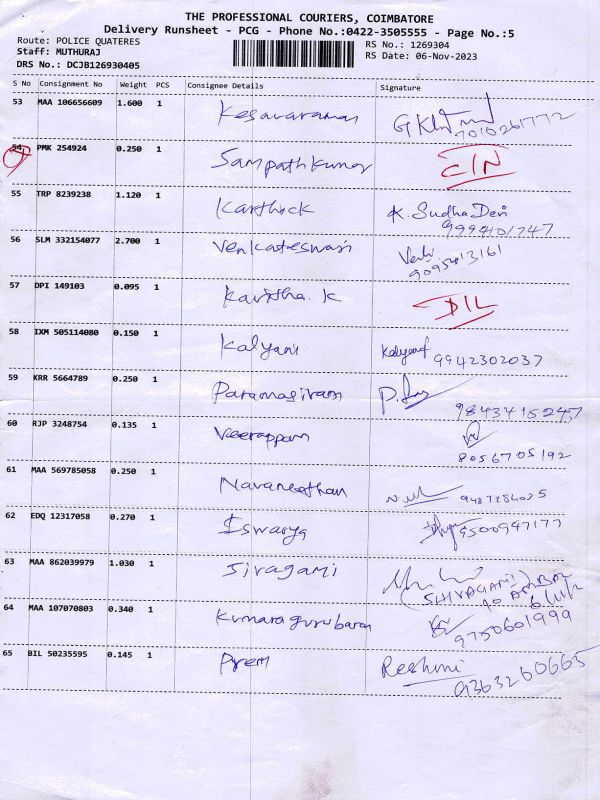 THE PROFESSIONAL COURIERS, COIMBATORE
Delivery Runsheet - PCG - Phone No.:0422-3505555 - Page No.:5
Route: POLICE QUATERES
RS No.: 1269304
Staff: MUTHURAJ
RS Date: 06-Nov-2023
DRS No.: DCJB126930405
S No Consignment No Weight PCS Consignee Details Signature
53 MAA 106656609 1.600 1 Kesavaraman
7010261772
54 PMK 254924 0.250 1 Sampathkumar
55 TRP 8239238 1.120 1 Karthick K. Sudha Devi
9994101747
56 SLM 332154077 2.700 1 Venkateswari
9095413161
57 DPI 149103 0.095 1 Kavitha. K
58 IXM 505114080 0.150 1 Kalyani 9942302037
59 KRR 5664789 0.250 1 Paramasivam
60 RJP 3248754 0.135 1 Veerappan
8056705192
61 MAA 569785058 0.250 1 Navaneethan
62 EDQ 12317058 0.270 1 Iswarya 9500947177
63 MAA 862039979 1.030 1 Sivagami
(SHIVAGAMI)
64 MAA 107070803 0.340 1 Kumaragurubaran
9750601999
65 BIL 50235595 0.145 1 Prem Reshmi
9363260665